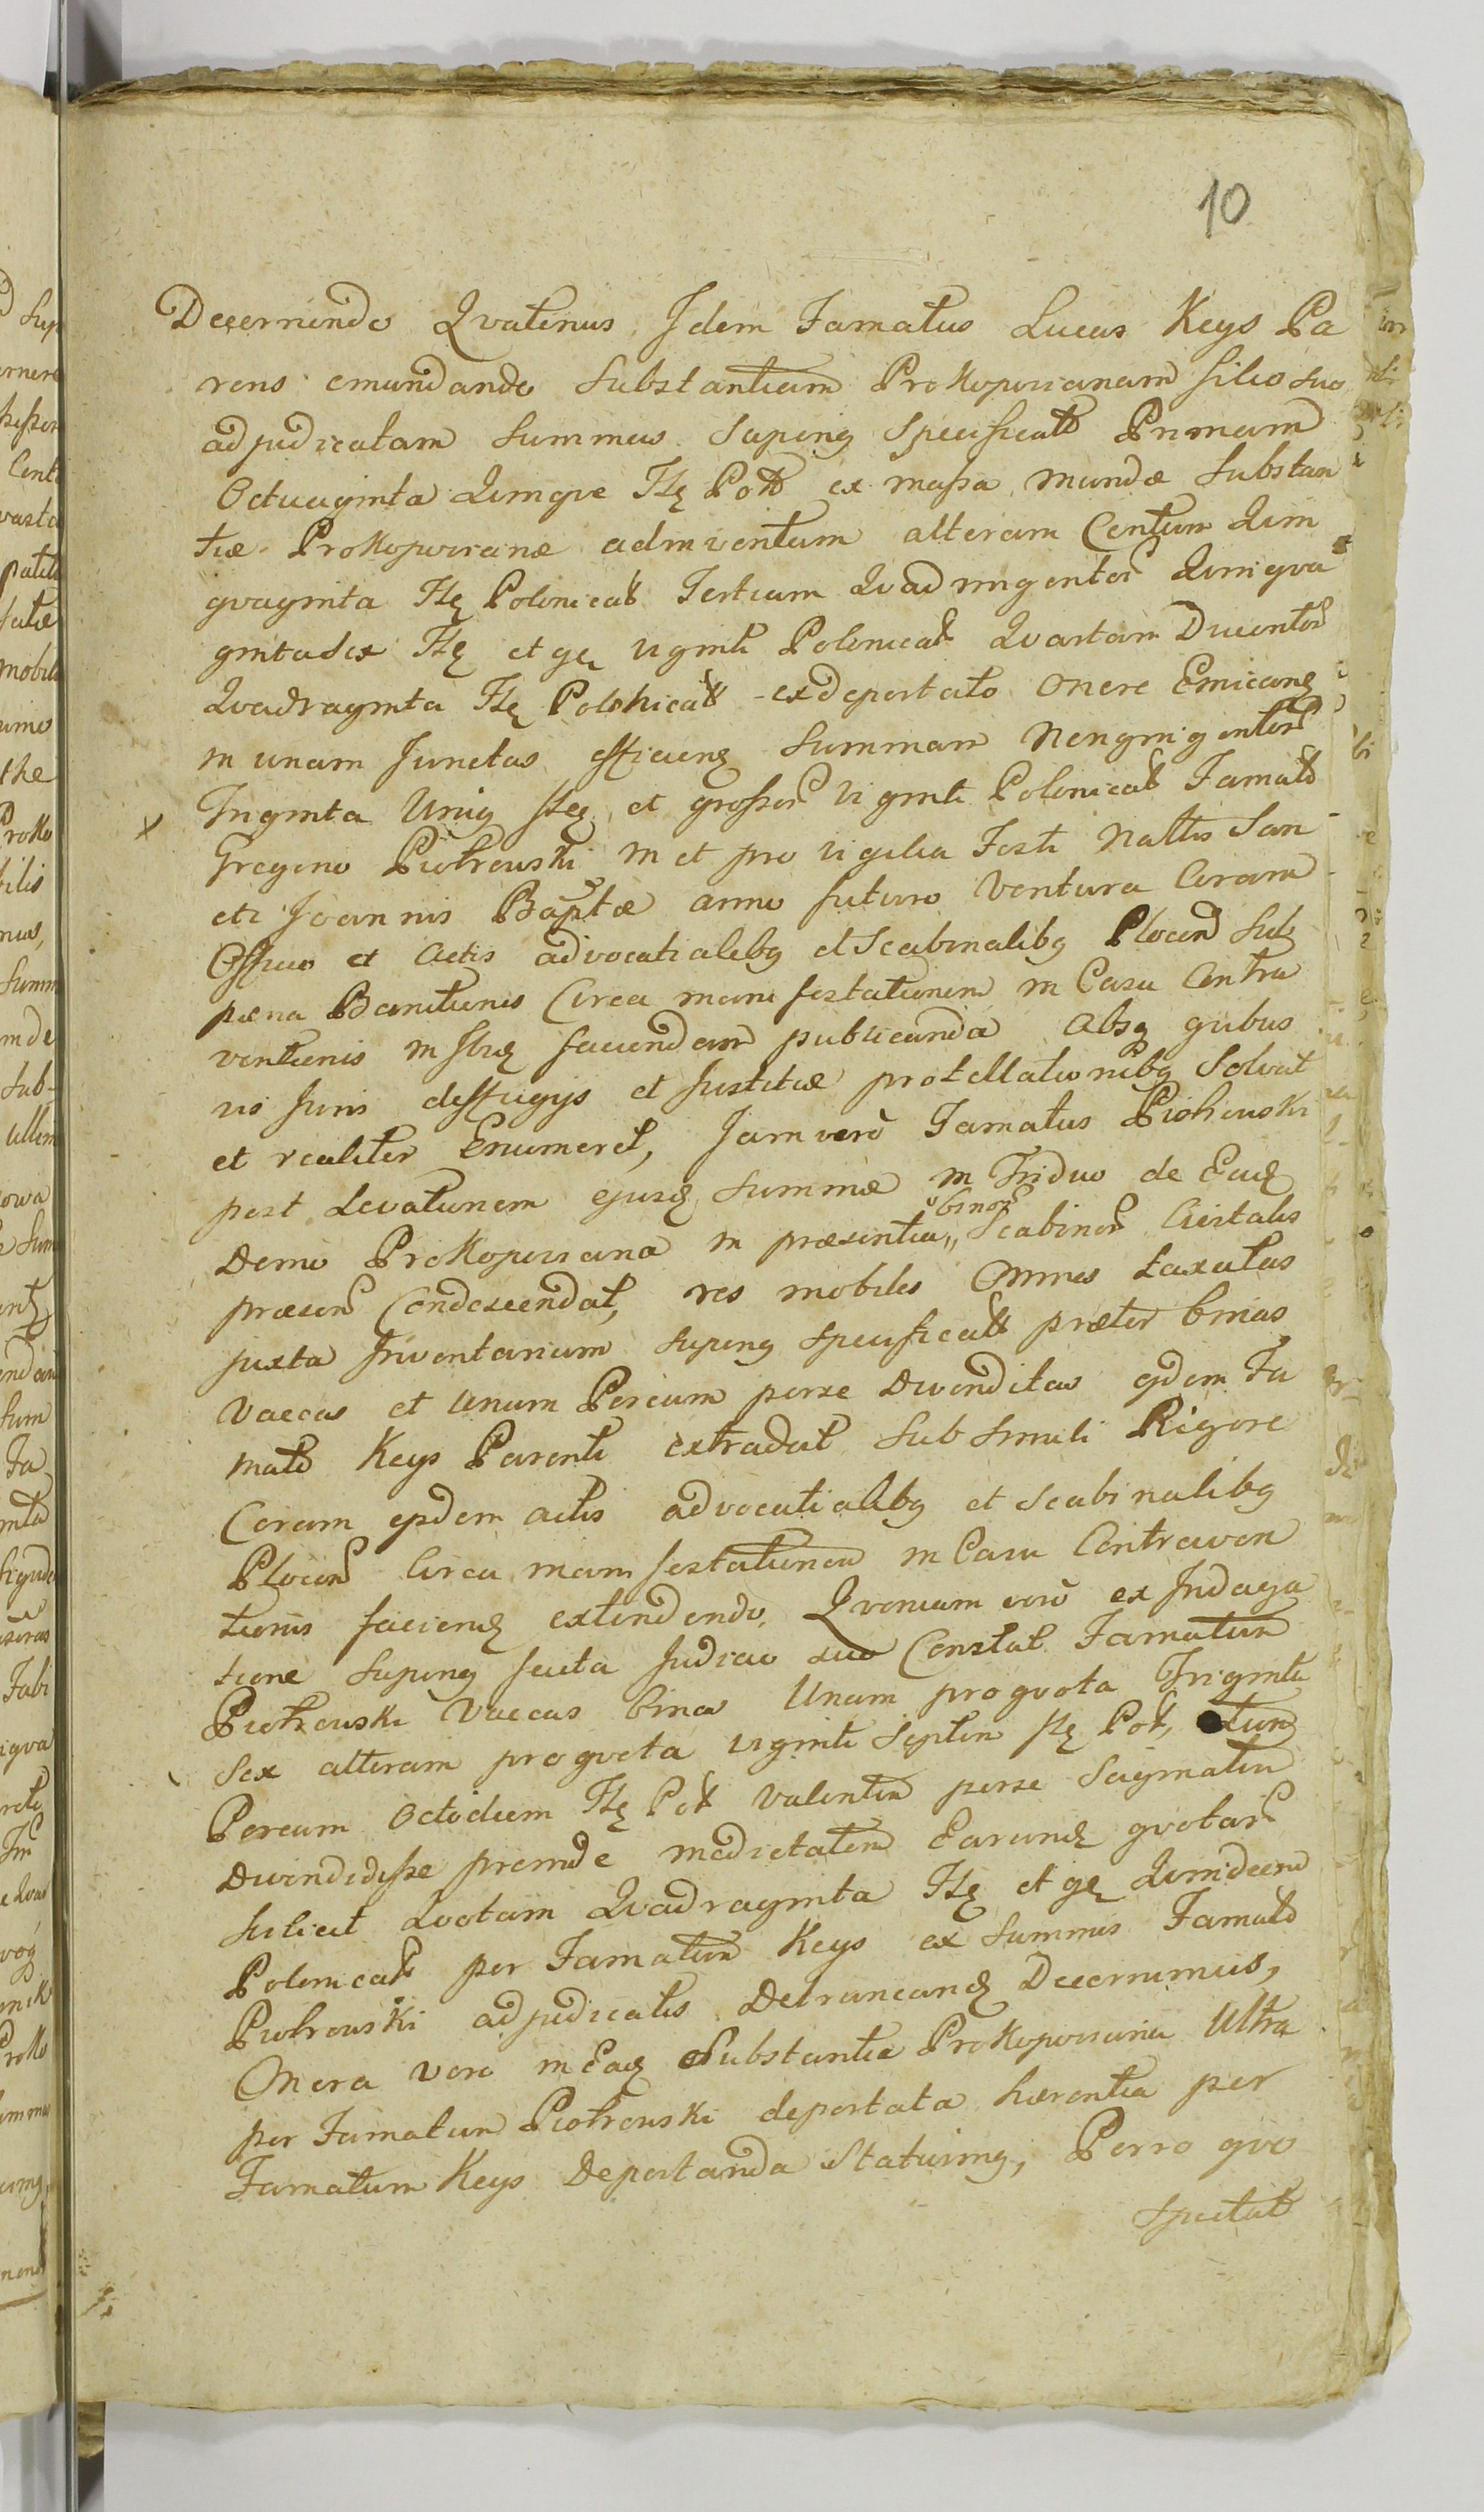 10
Decernendo Qvatenus Idem Famatus Lucas Keys Pa
rens emundando Substantiam Prokopovianam filio suo
adjudicatam Summas Superius Specificatas Primam
Octuaginta Quinqve Fl Poll ex massa mundæ Substan
tiæ Prokopovianæ adinventam alteram Centum Quin
qvaginta Fl Polonical Tertiam Qvadringentor Quinqva
ginta Sex Fl et gr viginti Polonical Qvartam Ducentor
Qvadraginta Fl Polonical ex deportato Onere Emicang
in unam Junctas efficieng Summam Nongingentor
Triginta Unius fleg et grossor viginti Polonical Famato
Gregorio Piotrowski in et pro vigilia Festi Nattis San
cti Joannis Baptæ anno futuro Ventura Coram
Officio et Actis advocatialibg et Scabinalibg Plocen Sub
pæna Banitionis Circa manifestationem in Casu Contra
ventionis faciendam publicanda Absq qvibus
vis Juris deffugijs et Justitiæ protellationibg Solvat
et realiter Enumeret, Jam verò Famatus Piotrowski
post Levationem ejusd Summæ in Triduo de Ead
Domo Prokopoviana in præsentia binor Scabinor Civitatis
præsen Condescendat, res mobiles Omnes taxatas
juxta Inventarium Superius Specificatas præter binas
Vaccas et Unum Porcum per se Divenditas eidem Fa
mato Keys Parenti extradat Sub Simili Rigore
Coram ijsdem actis advocatialibg et Scabinalibg
Plocen Circa manifestationem in Casu Contraven
tionis faciend extendendo. Qvoniam verò ex Indaga
tione Superius facta Judicio suo Constat Famatum
Piotrowski Vaccas binas Unam pro qvota Triginta
Sex alteram pro qvota viginti Septem fl Pol, tum
Porcum Octodecim Fl Pol Valentem per se Saginatum
Divendidisse proinde medietatem Earund qvotar
scilicet Qvotam Qvadraginta Fl et gr Quindecim
Polonical per Famatum Keys ex Summis Famato
Piotrowski adjudicatis Detruncand Decernimus,
Onera vero in Ead Substantia Prokopoviana Ultra
per Famatum Piotrowski deportata hærentia per
Famatum Keys Deportanda Statuimg, Porro qvo
Spectat